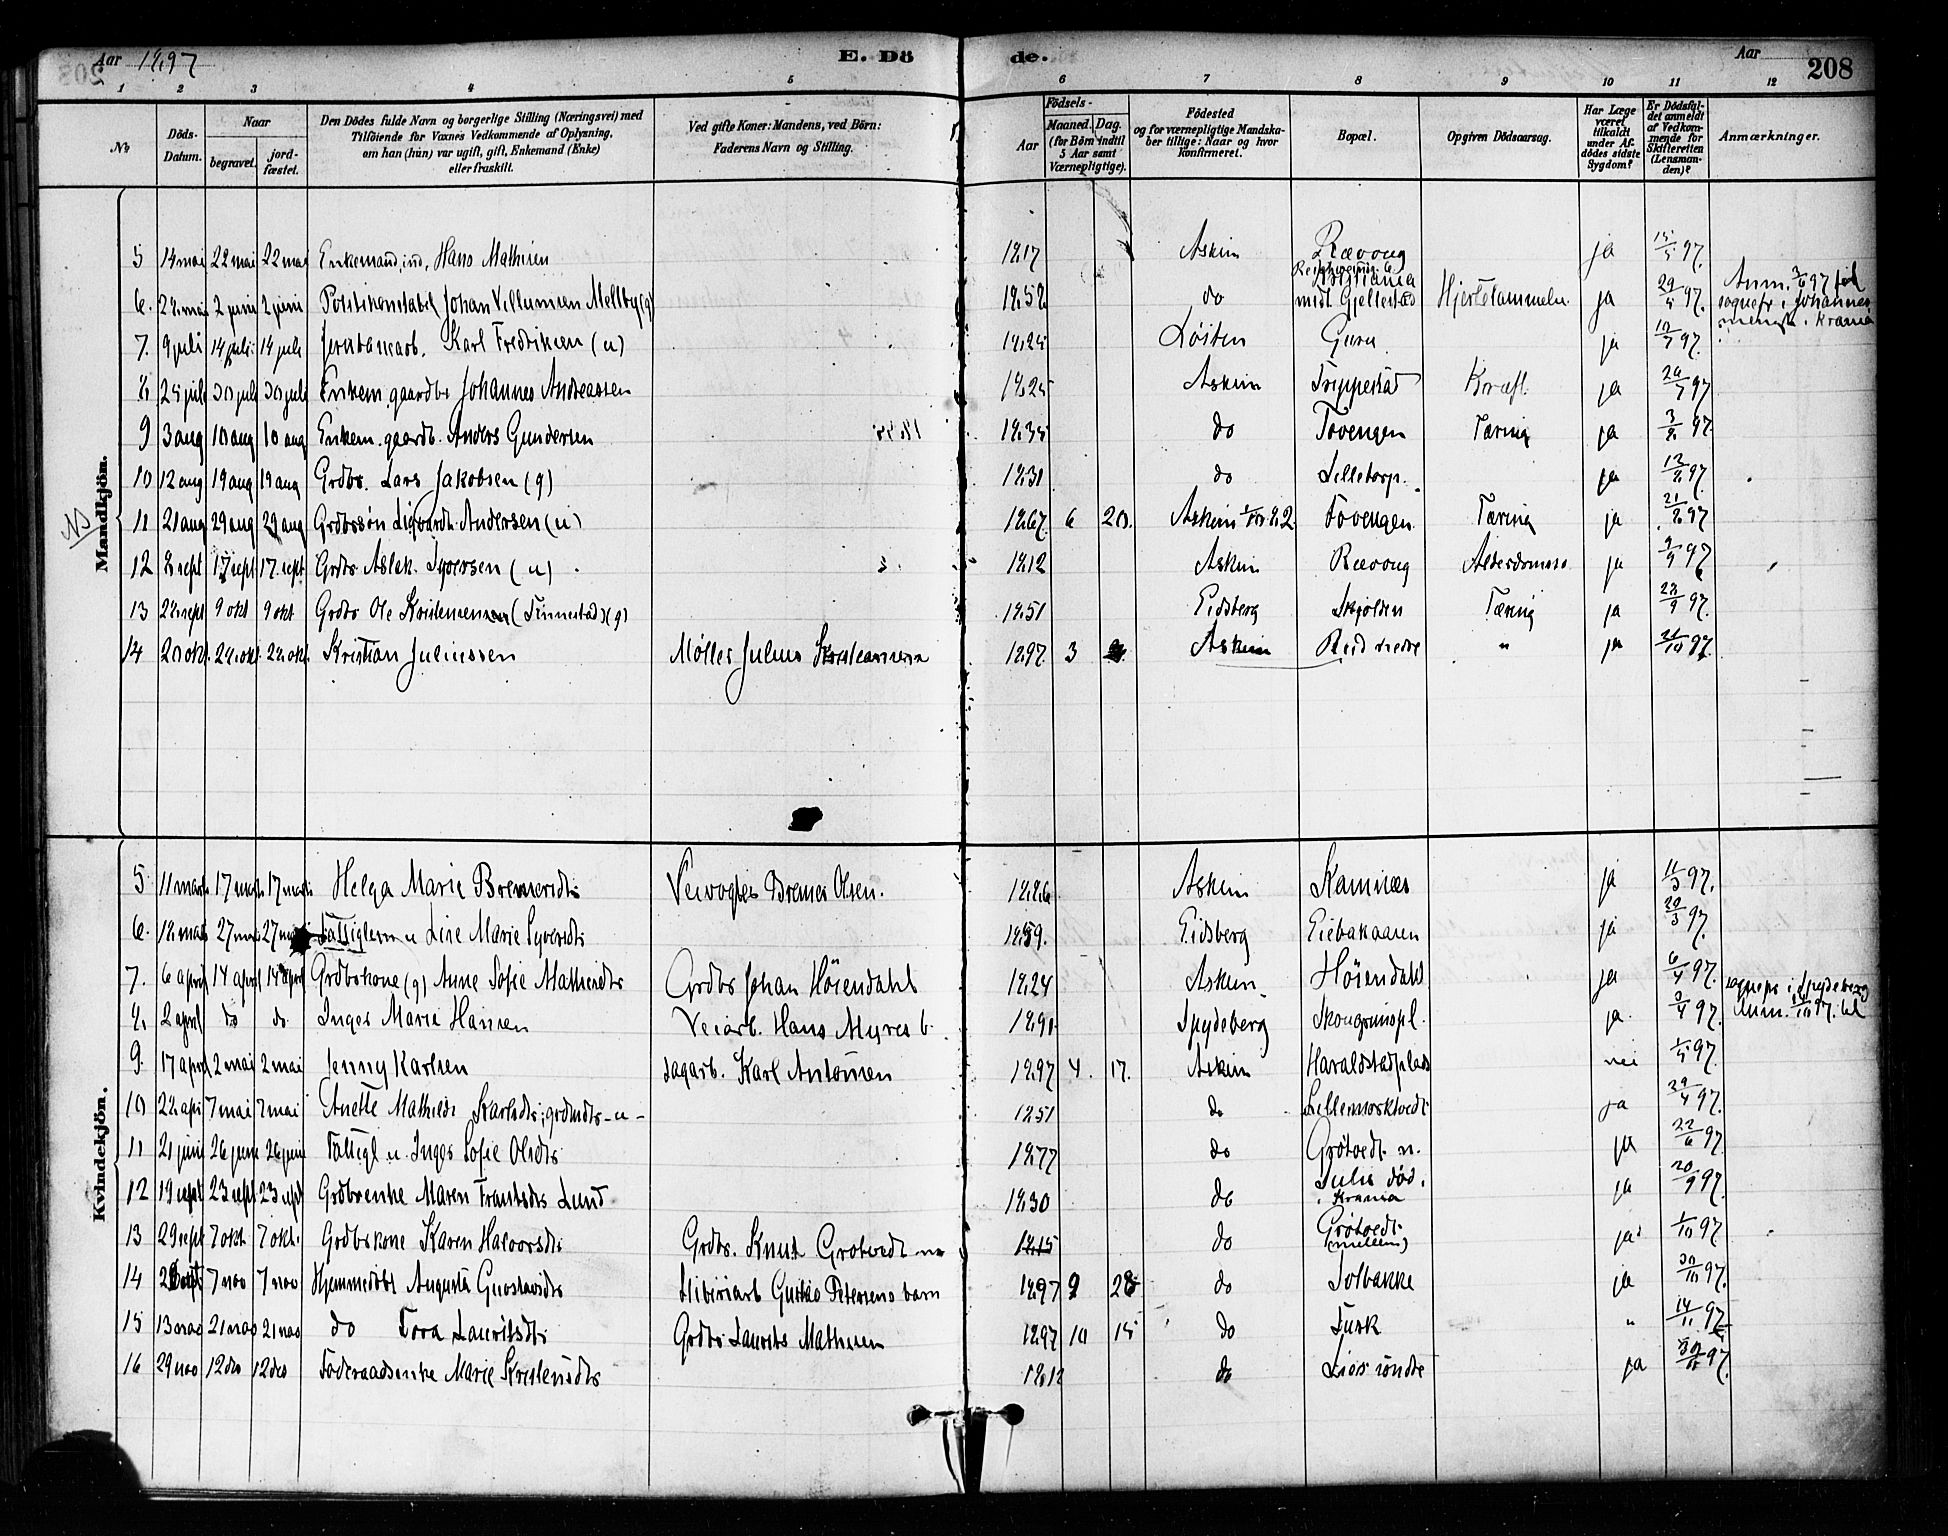 Aar 1897 E. Dö de. Aar 208
1 2 3 4 5 6 7 8 9 10 11 12
No Döds-Datum. Naar begravet. jord-fæstet. Den Dödes fulde Navn og borgerlige Stilling (Næringsvei) med Tilföiende for Voxnes Vedkommende af Oplysning, om han (hun) var ugift, gift, Enkemand (Enke) eller fraskilt. Ved gifte Koner: Mandens, ved Börn: Faderens Navn og Stilling. Aar Födsels- Maaned. Dag. (for Börn indtil 5 Aar samt Værnepligtige). Födested og for værnepligtige Mandskaber tillige: Naar og hvor konfirmeret. Bopæl. Opgiven Dödsaarsag. Har Læge været tilkaldt under Afdödes sidste Sygdom? Er Dödsfaldet anmeldt af Vedkommende for Skifteretten (Lensmanden)? Anmærkninger.
Mandkjön.
5 14 mai 22 mai 22 mai Enkemand, ind. Hans Mathisen 1817 Askim Rævoug ja 15/5 97.
6. 28. mai 2 juni 2 juni Politikonstabel Johan Villumsen Mellby (g) 1852 do Kristiania midl Gjellestad Hjertelammelse ja 29/5 97. Anm. 3/6 97 til sognepr. i Johannes menigh. i Krania
7. 9 juli 14 juli 14 juli Jernbanearb. Karl Fredriksen (u) 1825 Løiten Guru ja 10/7 97.
8 25 juli 30 juli 30 juli Enkem. gaardbr Johannes Andreassen 1825 Askim Trippestad Kræft ja 26/7 97
9 3 aug 10 aug 10 aug Enkem. gaardb. Anders Gundersen 1835 do Tovengen Tæring ja 3/8 97
10 12 aug 19 aug 19 aug Grdbr. Lars Jakobsen (g) 1831 do Lilletorp. ja 13/8 97.
11 21 aug 29 aug 29 aug Grdbrsøn Sigvardt Andersen (u) 1867. 6 20. Askim Tovengen Tæring ja 21/8 97
12 8 sept 17 sept 17. sept Grdbr Aslak Syversen (u) 1812 Askim Rævoug Alderdomssv ja 9/9 97
13 28. sept 9 okt 9 okt Grdbr Ole Kristiansen (Finnestad) (g) 1851 Eidsberg Skjolden Tæring ja 28/9 97.
14 20 okt. 28. okt. 28. okt. Kristian Juliussen Møller Julius Kristiansen 1897. 3 Askim Rud nedre " ja 21/10 97.
Kvindekjön.
5 11 marts 17 marts. 17 marts. Helga Marie Bremersdtr Veivogter Bremer Olsen. 1826 Askim Kamnæs ja 11/3 97.
6. 18. marts 27 marts 27 marts Fattiglem u Lise Marie Syversdtr 1859. Eidsberg Eiebakaaren ja 20/3 97.
7. 6 april 14 april 14 april Grdbrkone (g) Anne Sofie Mathisdtr Grdbr Johan Høiendahl 1824 Askim Høiendahl ja 6/4 97.
8. 2 april do do. Inger Marie Hansen Veiarb. Hans Myres b. 1890 Spydeberg Skougrunspl. ja 3/4 97. sognepr i Spydeberg Anm. 97. til
9. 17 april 2 mai 2 mai Jenny Karlsen Dagarb. Karl Antonsen 1897 4. 17. Askim Haraldstadplads nei 1/5 97.
10 28. apr 7 mai 7 mai Anette Mathilde Karlsdtr; grdmdtr - u - 1851 do Lillemorktvedt ja 29/4 97.
11 21 juni 26 juni 26 juni Fattigl u. Inger Sofie Olsdtr 1877 do Grøtvedt n. ja 22/6 97.
12 19 sept 23 sept 23 sept Grdbrenke Maren Frantsdtr Lund 1830 do død i Krania ja 20/9 97.
13 29 sept 7 okt. 7 okt. Grdbrkone Karen Halvorsdtr Grdbr. Knut Grøtvedt 1815 do Grøtvedt (mellem) ja 1/10 97
14 7 nov 7 nov Hjemmedøbt Augusta Gustavsdtr Gustav Petersens barn 1897 9 28 do Solbakke ja 30/10 97.
15 13 nov 21 nov 21 nov do Tora Lauritsdtr Grdbr Laurits Mathisen 1897 10 15 do Tusk " 14/11 97
16 29 nov 12 des 12 des Føderaadsenke Marie Kristensdtr 1812 do Lios søndre ja 30/11 97.